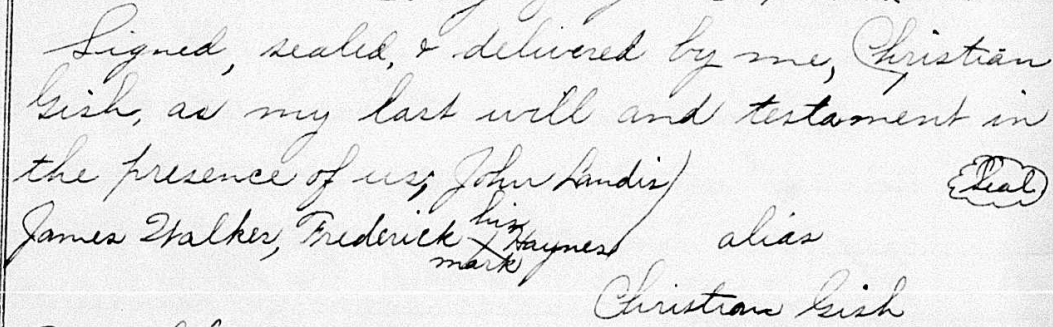 Signed, sealed, & delivered by me, Christian
Gish, as my last will and testament in
the presence of us; John Landis) Seal
James Walker, Frederick his X mark Haynes alias
Christian Gish